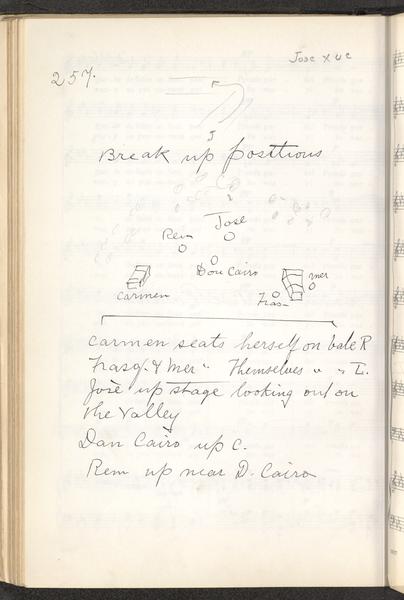 Jose X u c
257.
5
Break up positions
Jose
Rem
Don Cairo
mer
Carmen
Fras-
Carmen seats herself on bale R
Frasq. & Mer " Themselves " " L.
José up stage looking out on
the Valley
Dan Cairo up C.
Rem up near D. Cairo